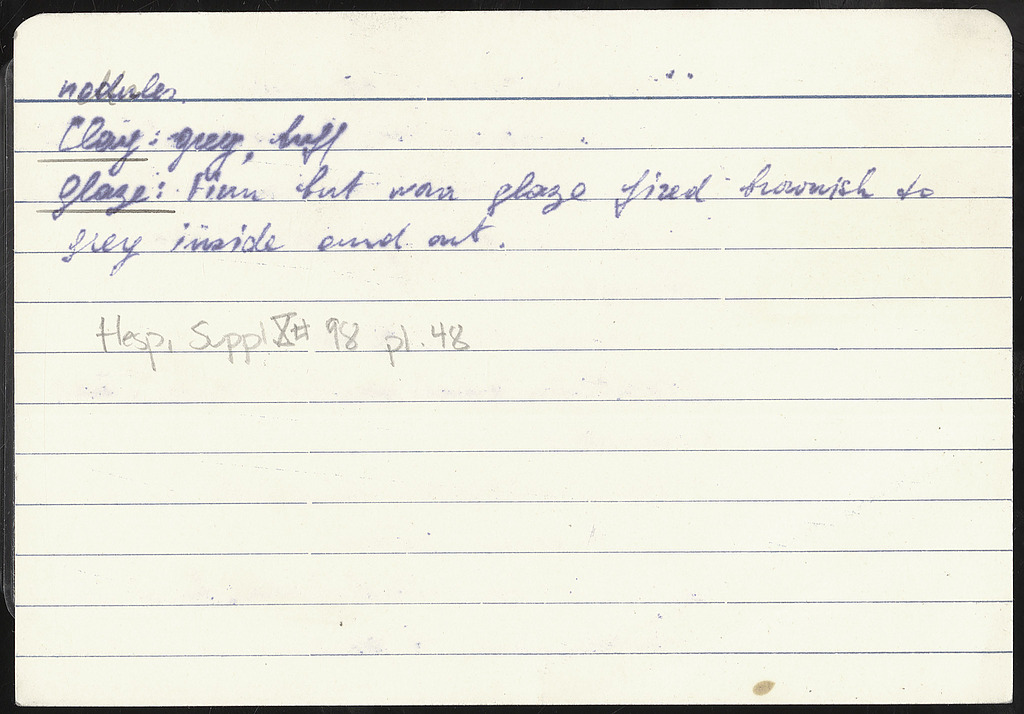 nodules.
Clay: grey, buff
Glaze: Firm but worn glaze fired brownish to
grey inside and out.
Hesp, Suppl X # 98 pl. 48